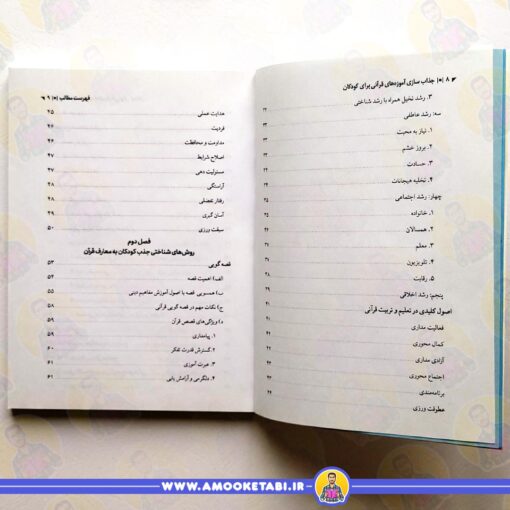 ۸ | جذاب سازی آموزه‌های قرآنی برای کودکان
۳. رشد تخیل همراه با رشد شناختی
سه: رشد عاطفی
۱. نیاز به محبت
۲. بروز خشم
۳. حسادت
۴. تخلیه هیجانات
چهار: رشد اجتماعی
۱. خانواده
۲. همسالان
۳. معلم
۴. تلویزیون
۵. رقابت
پنجم: رشد اخلاقی
اصول کلیدی در تعلیم و تربیت قرآنی
فعالیت مداری
کمال محوری
آزادی مداری
اجتماع محوری
برنامه‌مندی
عطوفت ورزی
فهرست مطالب | ۹
هدایت عملی ۴۵
فردیت ۴۶
مداومت و محافظت ۴۶
اصلاح شرایط ۴۷
مسئولیت دهی ۴۷
آراستگی ۴۸
رفتار تفضلی ۴۸
آسان گیری ۴۹
سبقت ورزی ۵۰
فصل دوم
روش‌های شناختی جذب کودکان به معارف قرآن
قصه گویی ۵۳
الف) اهمیت قصه ۵۳
ب) همسویی قصه با اصول آموزش مفاهیم دینی ۵۴
ج) نکات مهم در قصه گویی قرآنی ۵۸
د) ویژگی‌های قصص قرآن ۵۹
۱. پیامداری ۵۹
۲. گسترش قدرت تفکر ۶۰
۳. عبرت آموزی ۶۱
۴. دلگرمی و آرامش یابی ۶۱
WWW.AMOOKETABI.IR